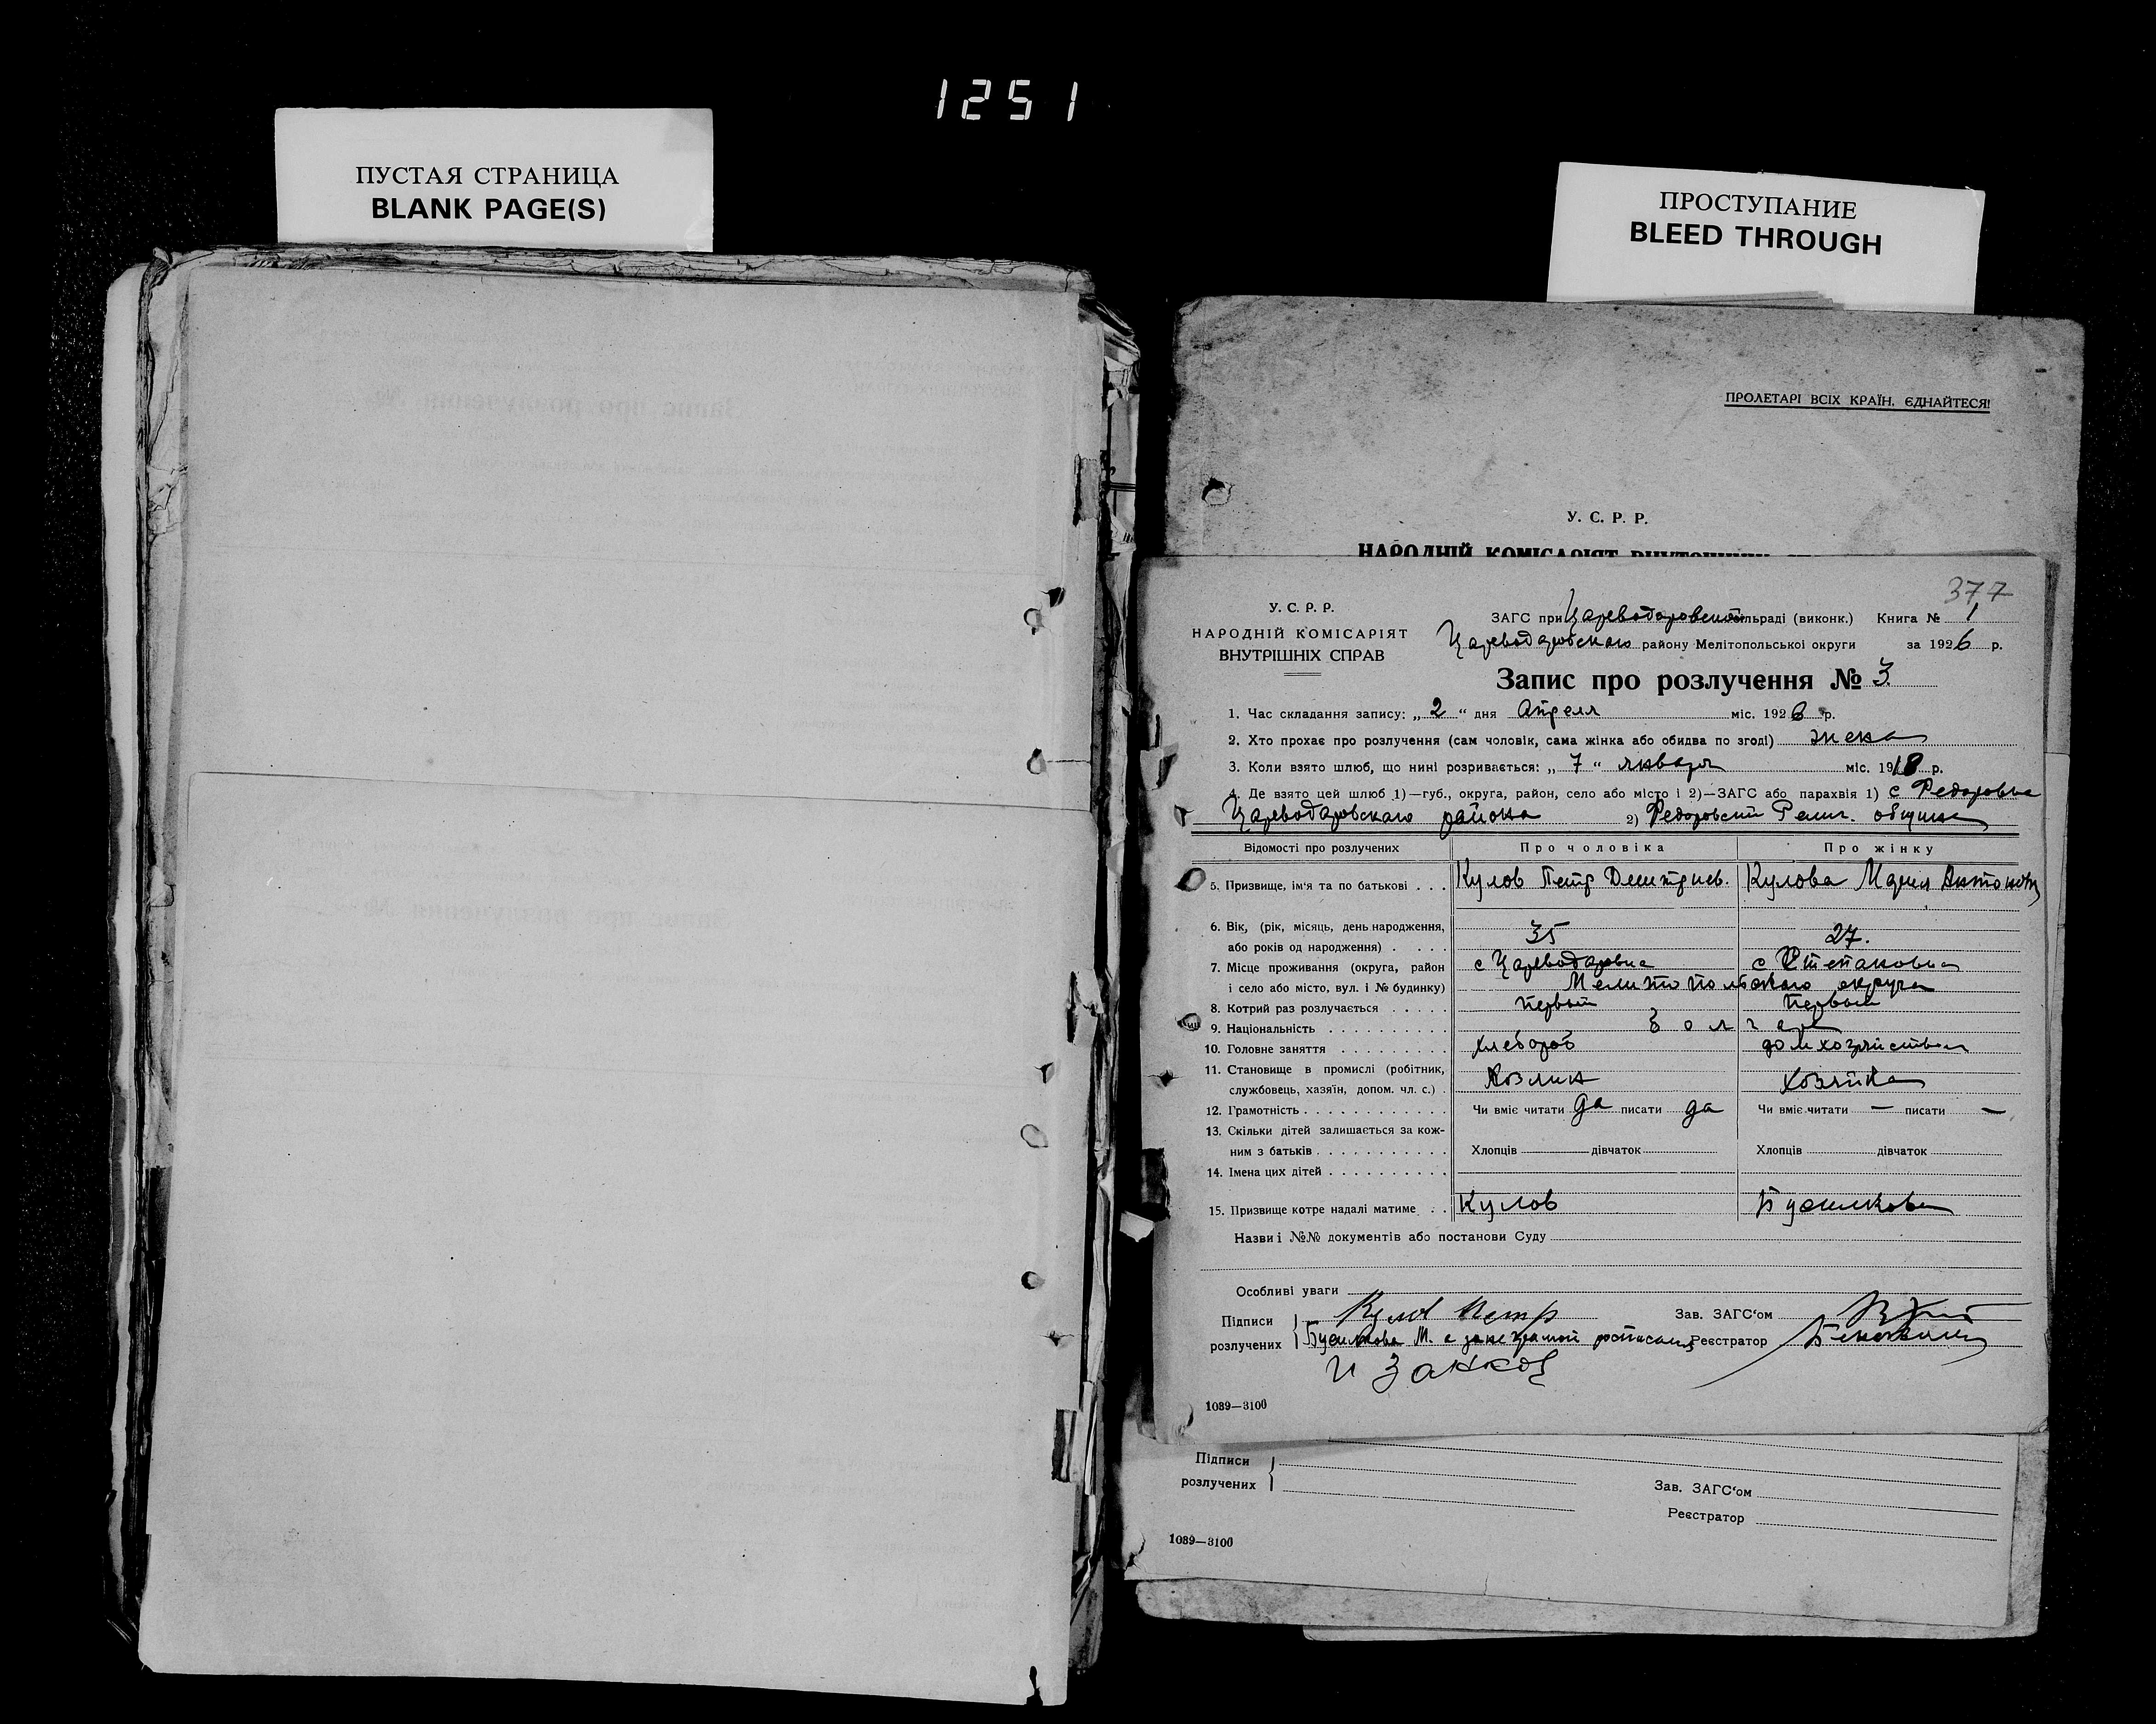 1251
ПУСТАЯ СТРАНИЦА
BLANK PAGE(S)
ПРОСТУПАНИЕ
BLEED THROUGH
ПРОЛЕТАРІ ВСІХ КРАЇН, ЄДНАЙТЕСЯ!
У. С. Р. Р.
НАРОДНІЙ КОМІСАРІЯТ
377
У. С. Р. Р.
НАРОДНІЙ КОМІСАРІЯТ
ВНУТРІШНІХ СПРАВ
ЗАГС при Цареводаровской сільраді (виконк.) Книга № 1
Цареводаровскаго району Мелітопольської округи за 1926 р.
Запис про розлучення № 3
1. Час складання запису: „ 2 “ дня Апреля міс. 1926 р.
2. Хто прохає про розлучення (сам чоловік, сама жінка або обидва по згоді) жена
3. Коли взято шлюб, що нині розривається: „ 7 “ января міс. 1918 р.
4. Де взято цей шлюб 1)—губ., округа, район, село або місто і 2)—ЗАГС або парахвія 1) с Федоровка
Цареводаровскаго района 2) Федоровской Религ. община
Відомості про розлучених Про чоловіка Про жінку
5. Призвище, ім'я та по батькові . . . Кулов Петр Дмитриев. Кулова Мария Антонов
6. Вік, (рік, місяць, день народження,
або років од народження) . . . . 35 27.
7. Місце проживання (округа, район с Цареводаровка с Степановка
і село або місто, вул. і № будинку) Мелитопольскаго округа
8. Котрий раз розлучається . . . . . первый первый
9. Національність . . . . . . . . . . болгаре
10. Головне заняття . . . . . . . . . хлебороб домхозяйством
11. Становище в промислі (робітник,
службовець, хазяїн, допом. чл. с.) . Хозяин Хозяйка
12. Грамотність . . . . . . . . . . . . Чи вміє читати да писати да Чи вміє читати — писати —
13. Скільки дітей залишається за кож-
ним з батьків . . . . . . . . . . . Хлопців дівчаток Хлопців дівчаток
14. Імена цих дітей . . . . . . . . . .
15. Призвище котре надалі матиме . . Кулов
Назви і №№ документів або постанови Суду
Особливі уваги
Підписи Кулов Петр Зав. ЗАГС‘ом
розлучених М. а за неграмотн росписался Реєстратор
1089—3100
Підписи
розлучених
Зав. ЗАГС‘ом
Реєстратор
1089—3100